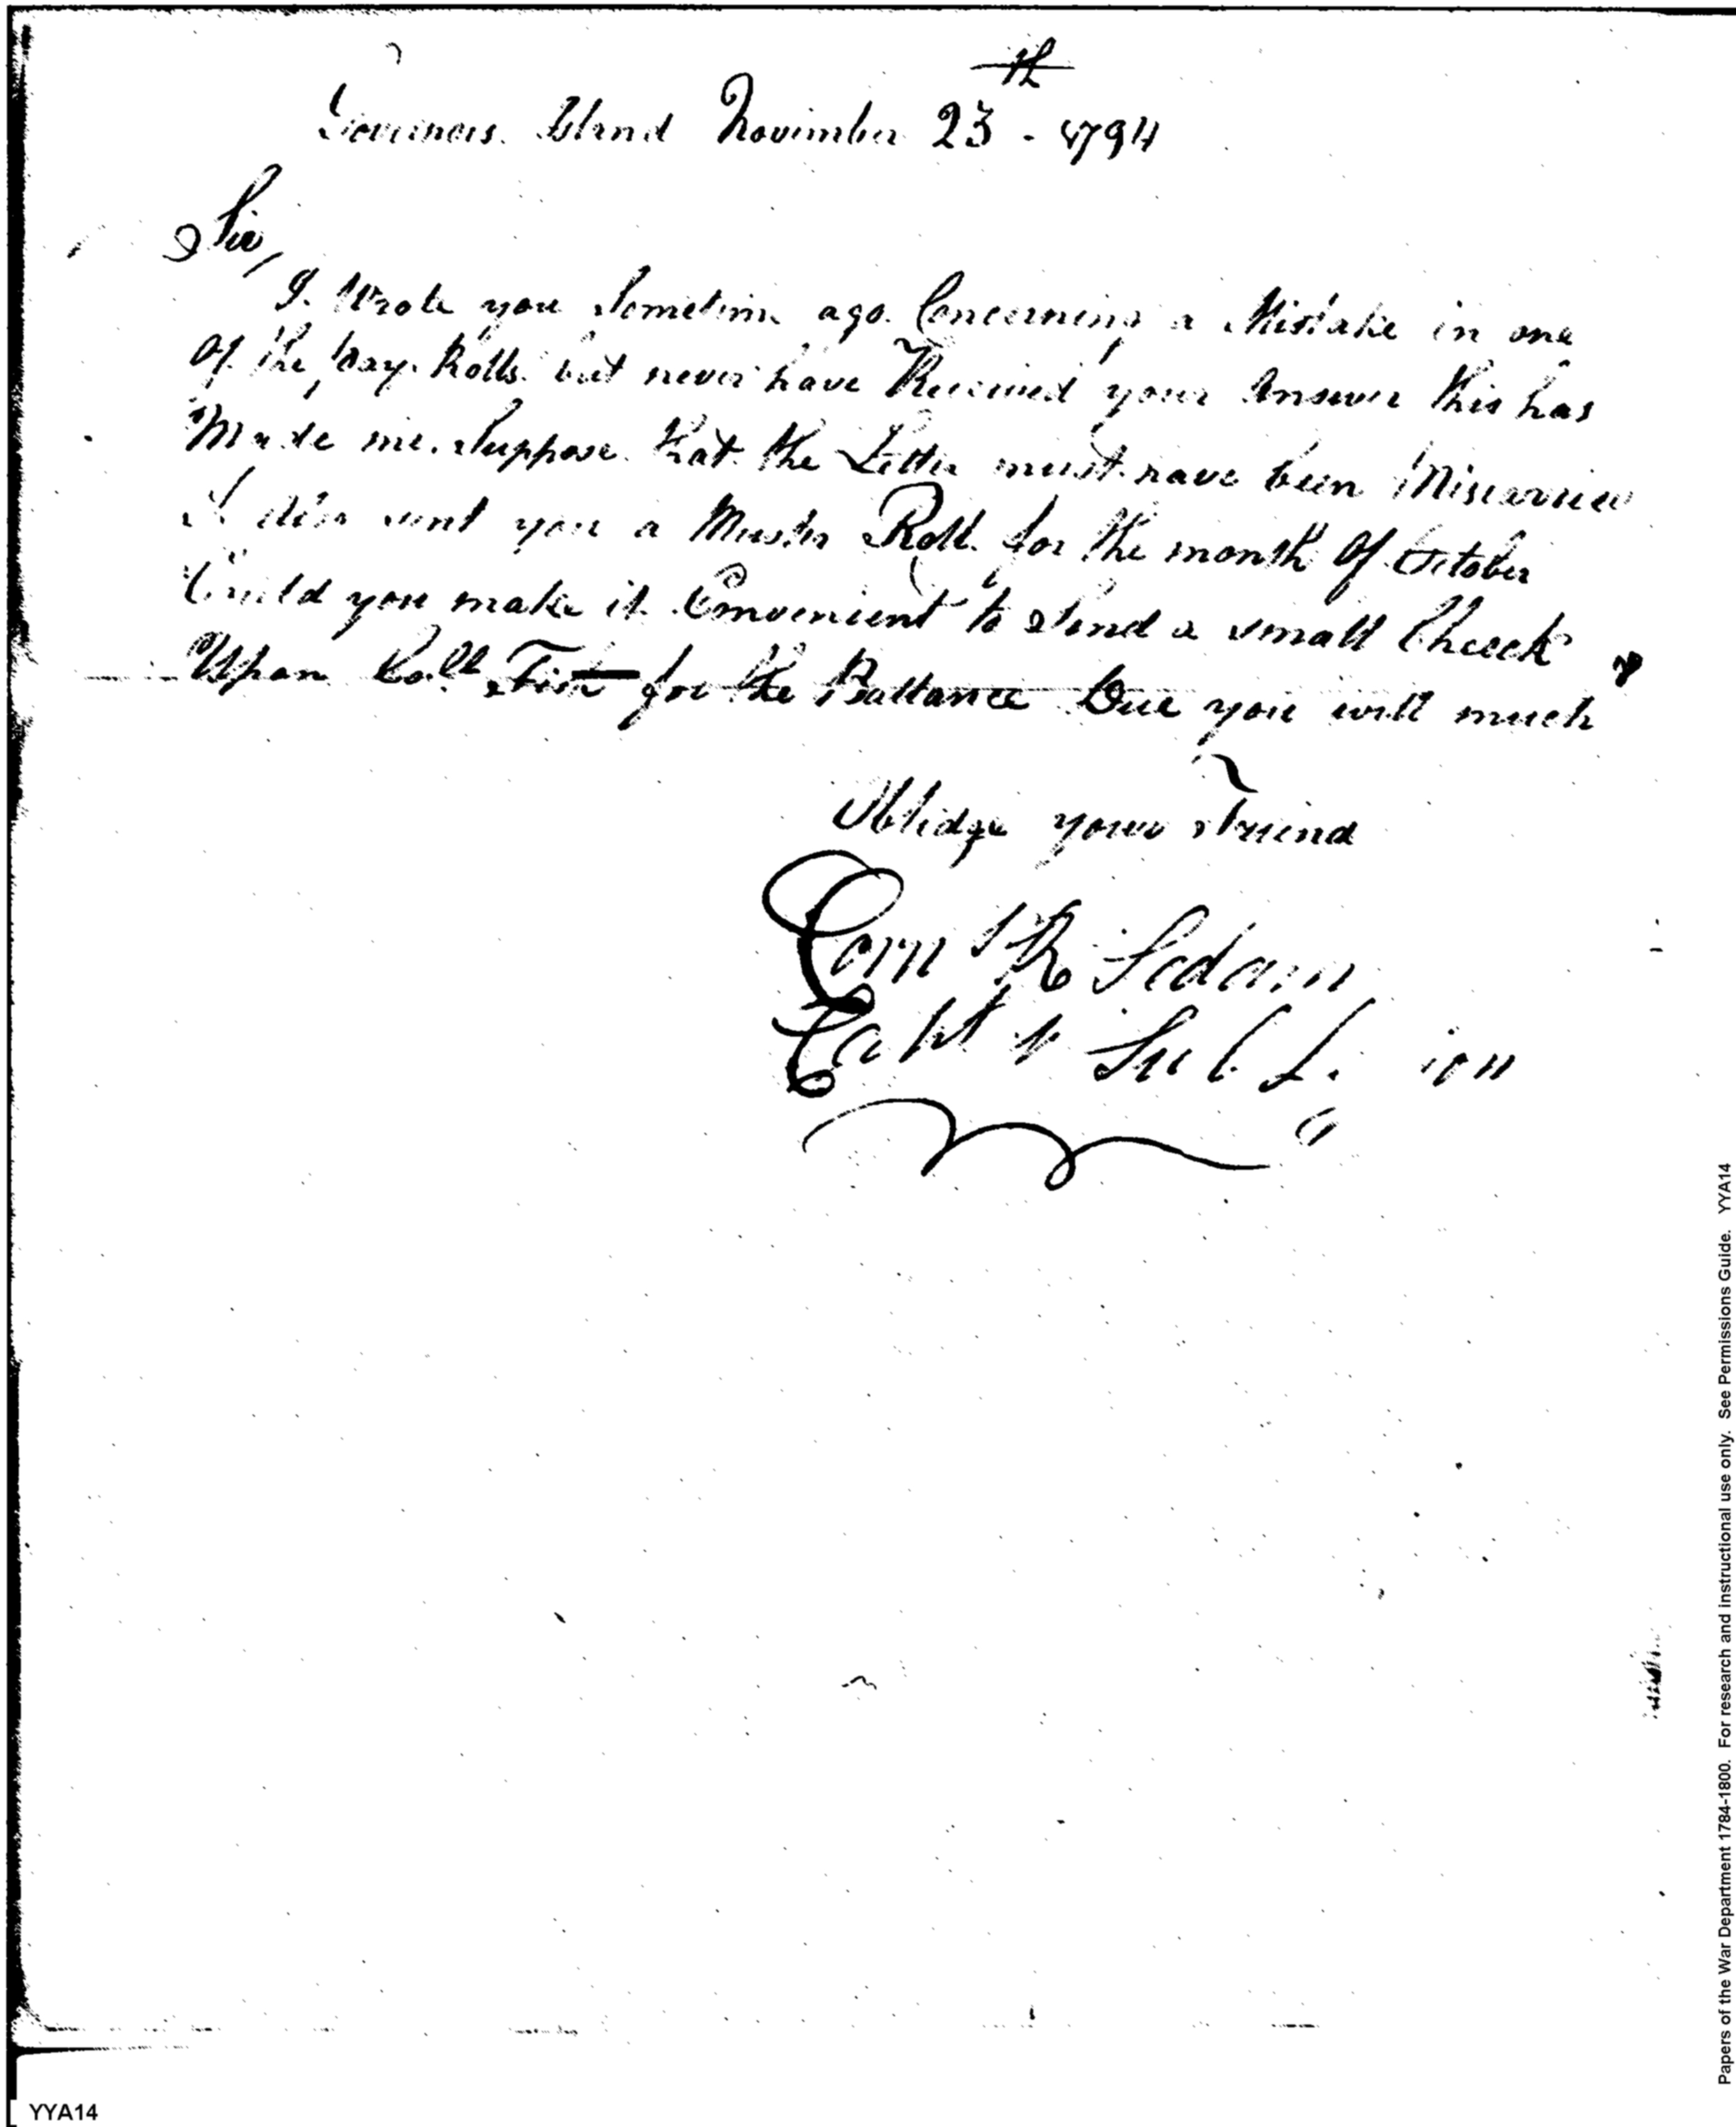 Governors Island November 23th - 1794
Sir,
I Wrote you Sometime ago Concerning a Mistake in one
Of the Pay Rolls but never have Received your Answer this has
Made me Suppose that the Letter must have been Miscarried
I also sent you a Muster Roll for the month Of October
Could you make it Convenient to Send a small Cheeck
Upon Coll Fish for the Ballance Due you will much
Oblidge your Friend
Corn R Sedam
Capt Sub Legion
Papers of the War Department 1784-1800. For research and instructional use only. See Permissions Guide. YYA14
YYA14